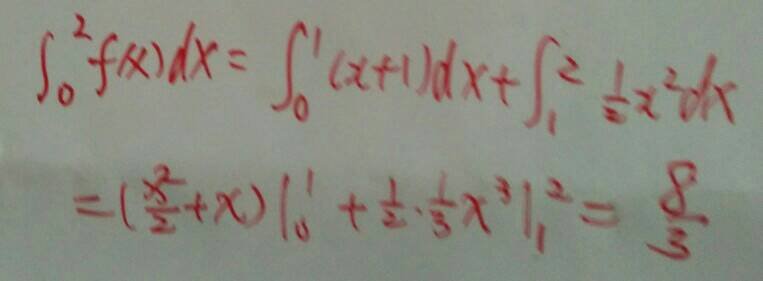 ∫₀² f(x)dx = ∫₀¹ (x+1)dx + ∫₁² ½x²dx
= (x²/2 + x)|₀¹ + ½·⅓x³|₁² = 8/3